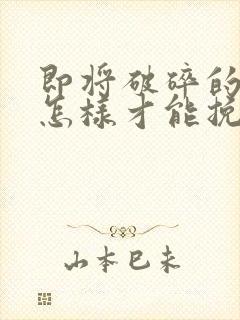 即将破碎的
怎样才能挽
山本巳未